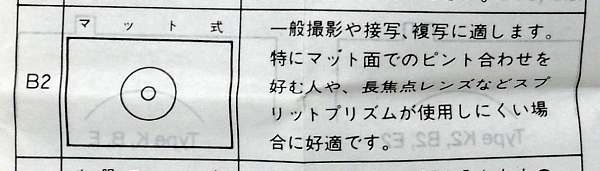 B2
マット式
一般撮影や接写、複写に適します。
特にマット面でのピント合わせを
好む人や、長焦点レンズなどスプ
リットプリズムが使用しにくい場
合に好適です。
Type K, B, E
Type K2, B2, E2